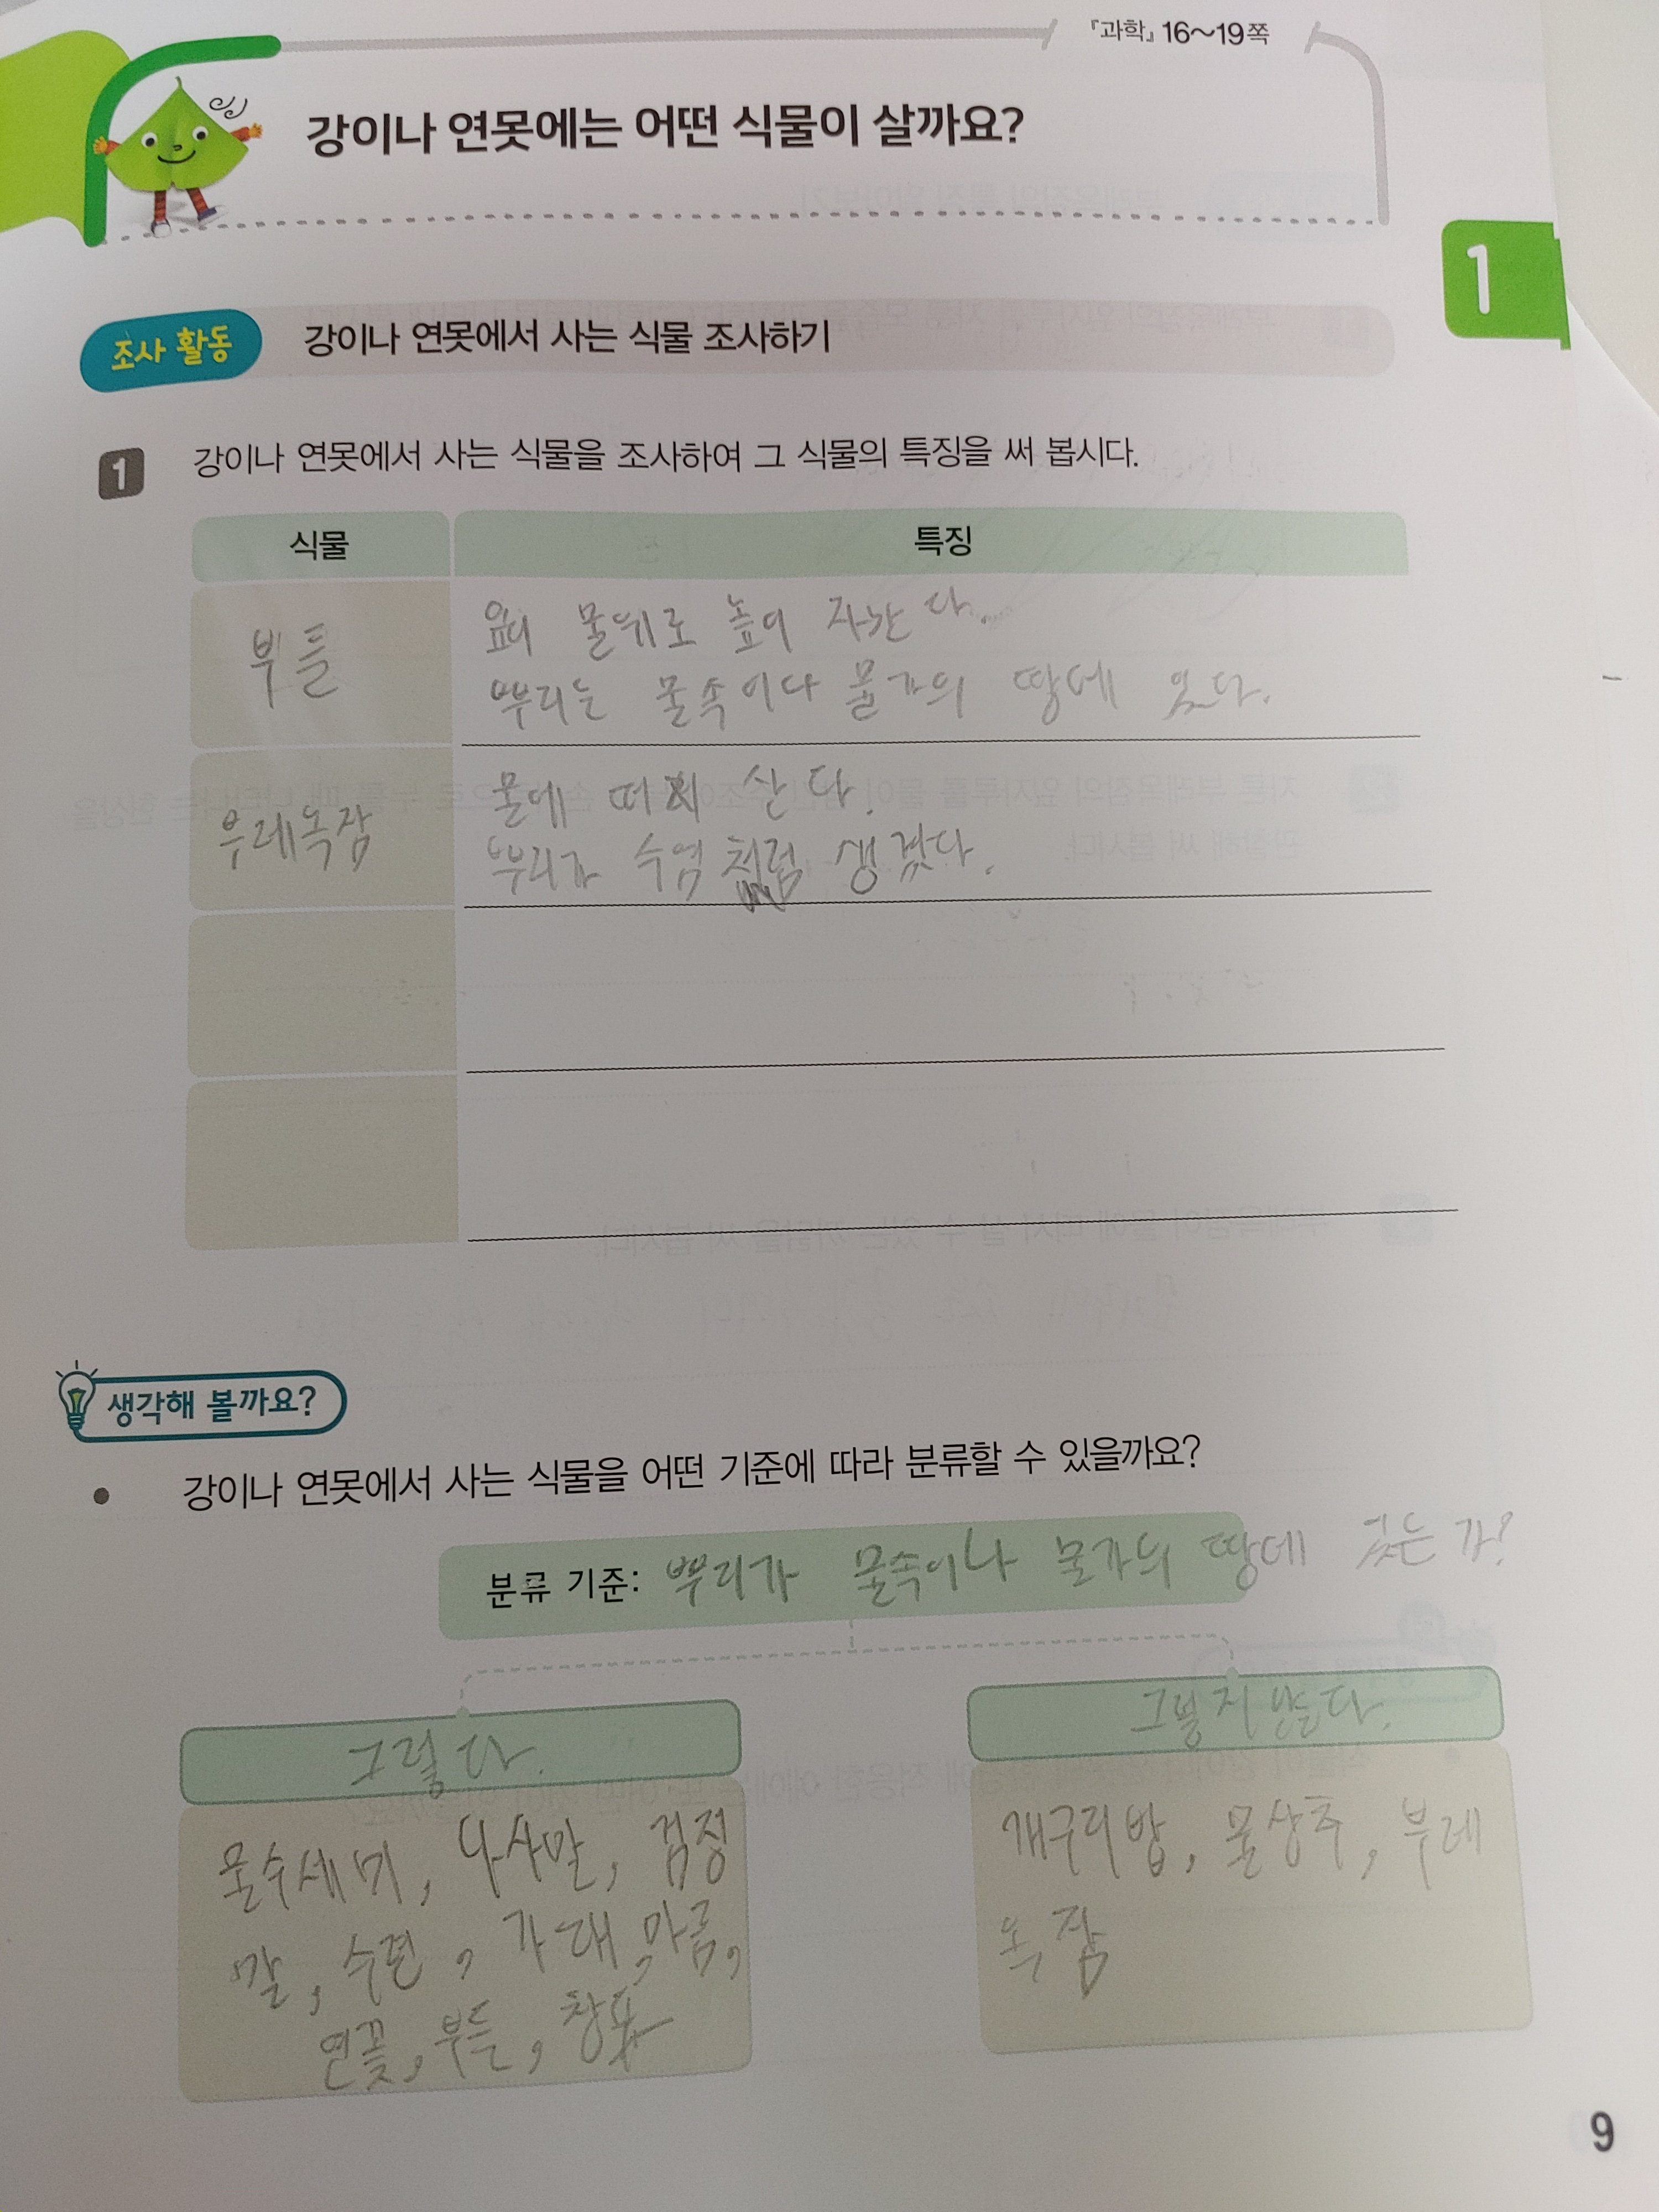 『과학』 16~19쪽
강이나 연못에는 어떤 식물이 살까요?
1
조사 활동 강이나 연못에서 사는 식물 조사하기
1 강이나 연못에서 사는 식물을 조사하여 그 식물의 특징을 써 봅시다.
식물 특징
부들
잎이 물위로 높이 자란다.
뿌리는 물속이나 물가의 땅에 있다.
부레옥잠
물에 떠서 산다.
뿌리가 수염처럼 생겼다.
생각해 볼까요?
• 강이나 연못에서 사는 식물을 어떤 기준에 따라 분류할 수 있을까요?
분류 기준: 뿌리가 물속이나 물가의 땅에 있는가?
그렇다. 그렇지 않다.
물수세미, 나사말, 검정
말, 수련, 가래, 마름,
연꽃, 부들, 창포
개구리밥, 물상추, 부레
옥잠
9